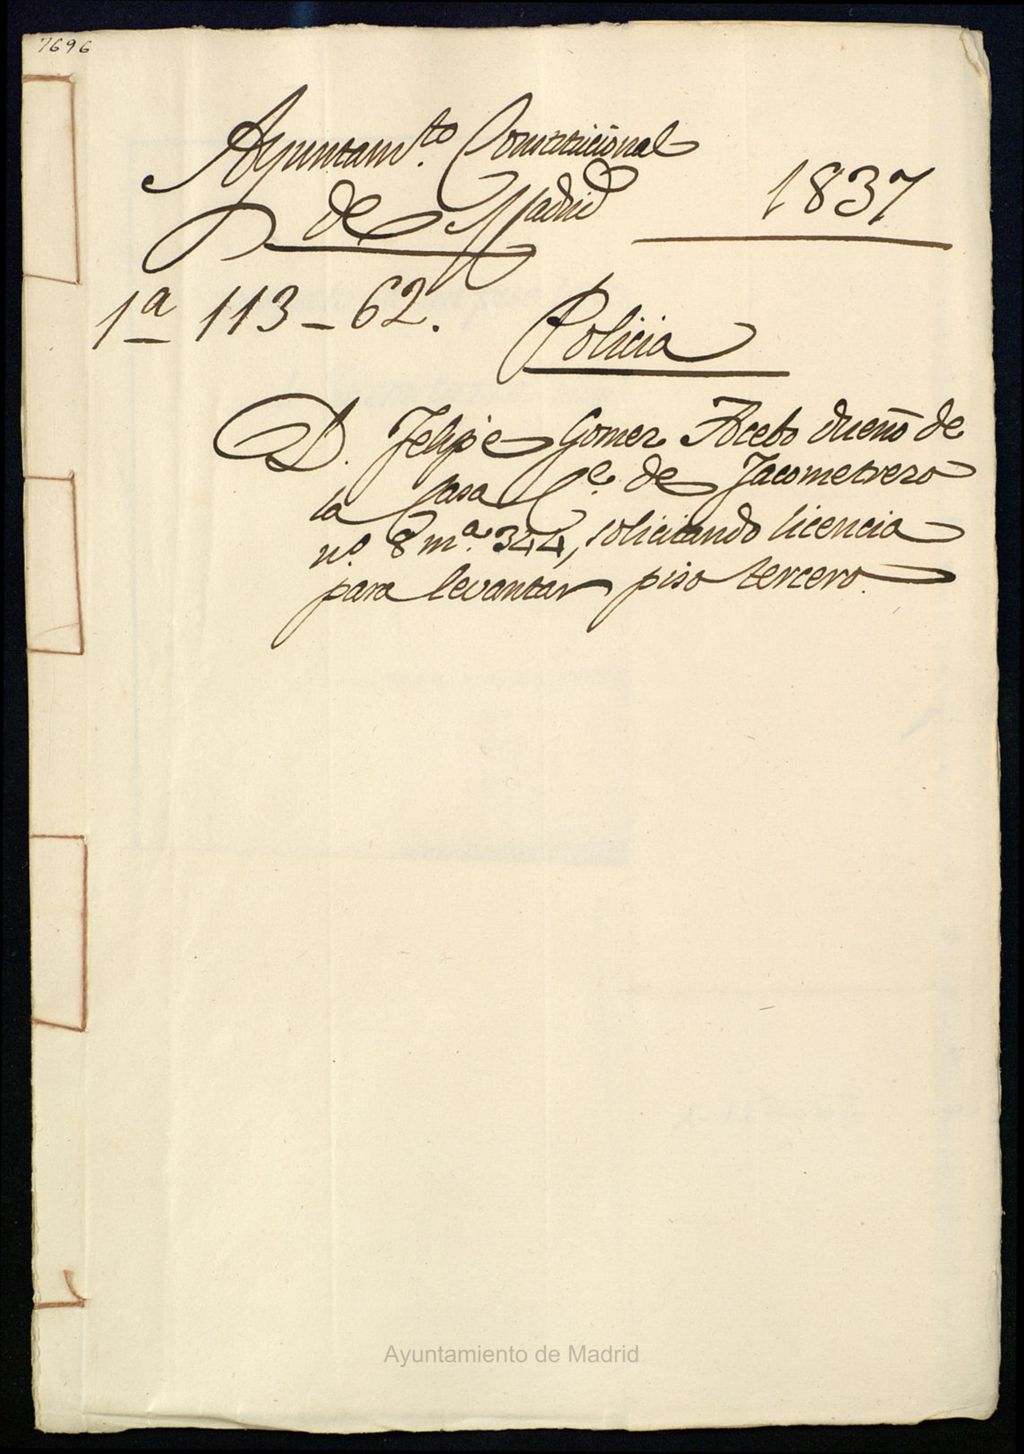 7696
Ayuntam.to Constitucional
de Madrid
1837
1a 113-62.
Policia
D. Felipe Gomez Acebo dueño de
la Casa C.e de Jacometrezo
n.o 8 m.a 344, solicitando licencia
para levantar piso tercero.
Ayuntamiento de Madrid